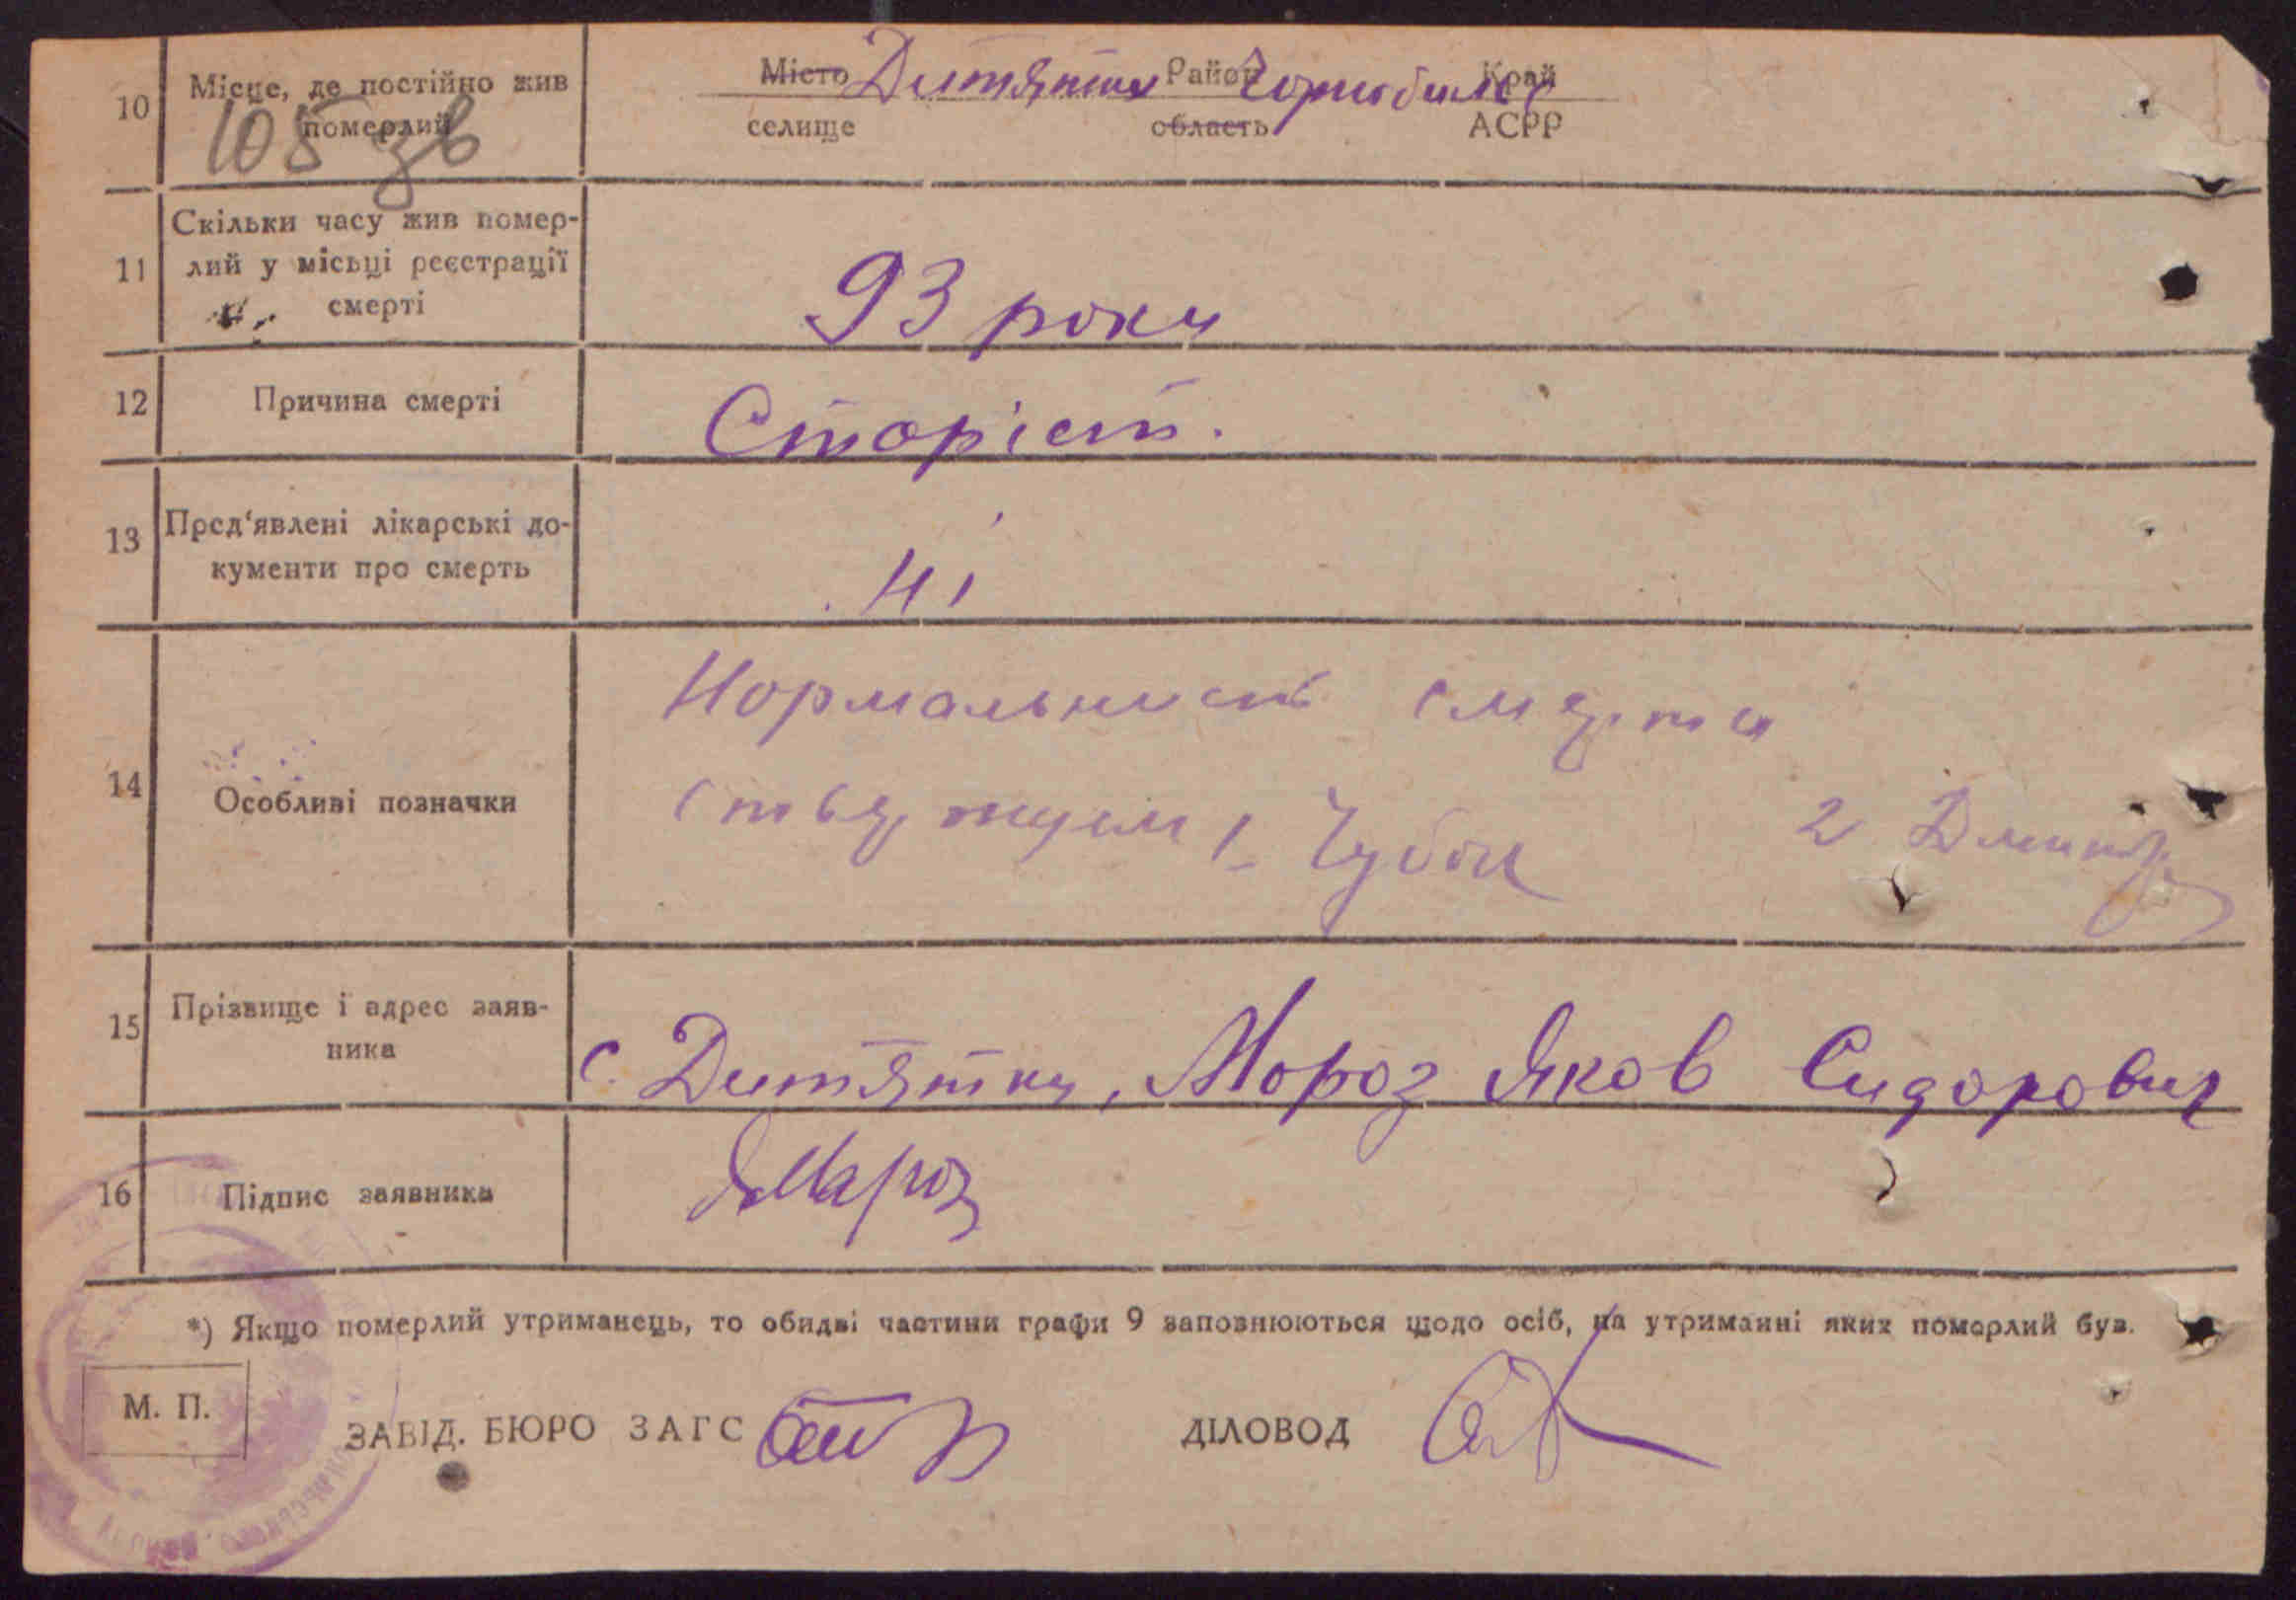 10 Місце, де постійно жив померлий
105 зв
Місто Дитятки Район Чорнобильс Край
селище область АСРР
11 Скільки часу жив помер-
лий у місьці реєстрації
смерті
93 роки
12 Причина смерті Сторіст.
13 Пред'явлені лікарські до-
кументи про смерть
Ні
Нормальнисть смерти
14 Особливі позначки
ствержуем 1. Чубок 2 Дмитр
15 Прізвище і адрес заяв-
ника
с. Дитятки, Мороз Яков Сидорович
16 Підпис заявника ЯМороз
*) Якщо померлий утриманець, то обидві частини графи 9 заповнюються щодо осіб, на утриманні яких померлий був.
М. П.
ЗАВІД. БЮРО ЗАГС ДІЛОВОД